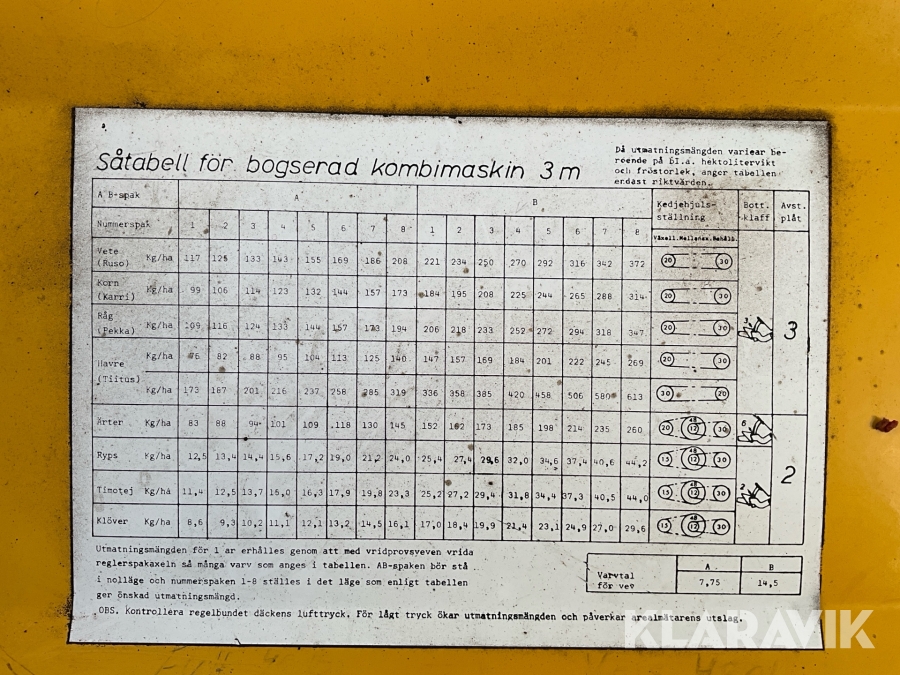 Såtabell för bogserad kombimaskin 3 m
Då utmatningsmängden variear be-
roende på bl.a. hektolitervikt
och fröstorlek, anger tabellen
endast riktvärden.
A B-spak A B Kedjehjuls-ställning Bott.klaff Avst.plåt
Nummerspak 1 2 3 4 5 6 7 8 1 2 3 4 5 6 7 8 Växell. Mellanax. Behåll.
Vete (Ruso) Kg/ha 117 125 133 143 155 169 186 208 221 234 250 270 292 316 342 372 20 30
Korn (Karri) Kg/ha 99 106 114 123 132 144 157 173 184 195 208 225 244 265 288 314 20 30
Råg (Pekka) Kg/ha 109 116 124 133 144 157 173 194 206 218 233 252 272 294 318 347 20 30 3 3
Havre (Tiitus) Kg/ha 76 82 88 95 104 113 125 140 147 157 169 184 201 222 245 269 20 30
Kg/ha 173 187 201 216 237 258 285 319 336 358 385 420 458 506 580 613 30 20
Ärter Kg/ha 83 88 94 101 109 118 130 145 152 162 173 185 198 214 235 260 20 48 12 30 6
Ryps Kg/ha 12,5 13,4 14,4 15,6 17,2 19,0 21,2 24,0 25,4 27,4 29,6 32,0 34,6 37,4 40,6 44,2 15 48 12 30 2
Timotej Kg/ha 11,4 12,5 13,7 15,0 16,3 17,9 19,8 23,3 25,2 27,2 29,4 31,8 34,4 37,3 40,5 44,0 15 48 12 30 2
Klöver Kg/ha 8,6 9,3 10,2 11,1 12,1 13,2 14,5 16,1 17,0 18,4 19,9 21,4 23,1 24,9 27,0 29,6 15 48 12 30
Utmatningsmängden för 1 ar erhålles genom att med vridprovsveven vrida
reglerspakaxeln så många varv som anges i tabellen. AB-spaken bör stå
i nolläge och nummerspaken 1-8 ställes i det läge som enligt tabellen
ger önskad utmatningsmängd.
A B
Varvtal för vev 7,75 14,5
OBS. Kontrollera regelbundet däckens lufttryck. För lågt tryck ökar utmatningsmängden och påverkar arealmätarens utslag.
KLARAVIK